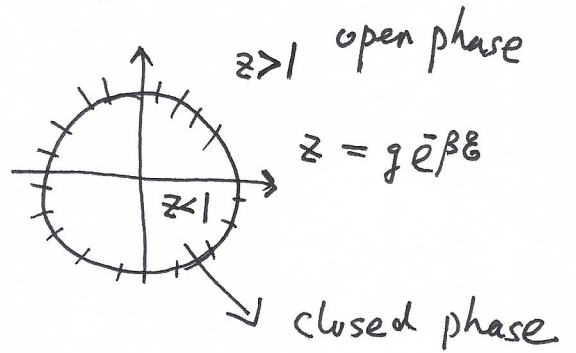 z>1 open phase
z = g e^-βε
z<1
closed phase